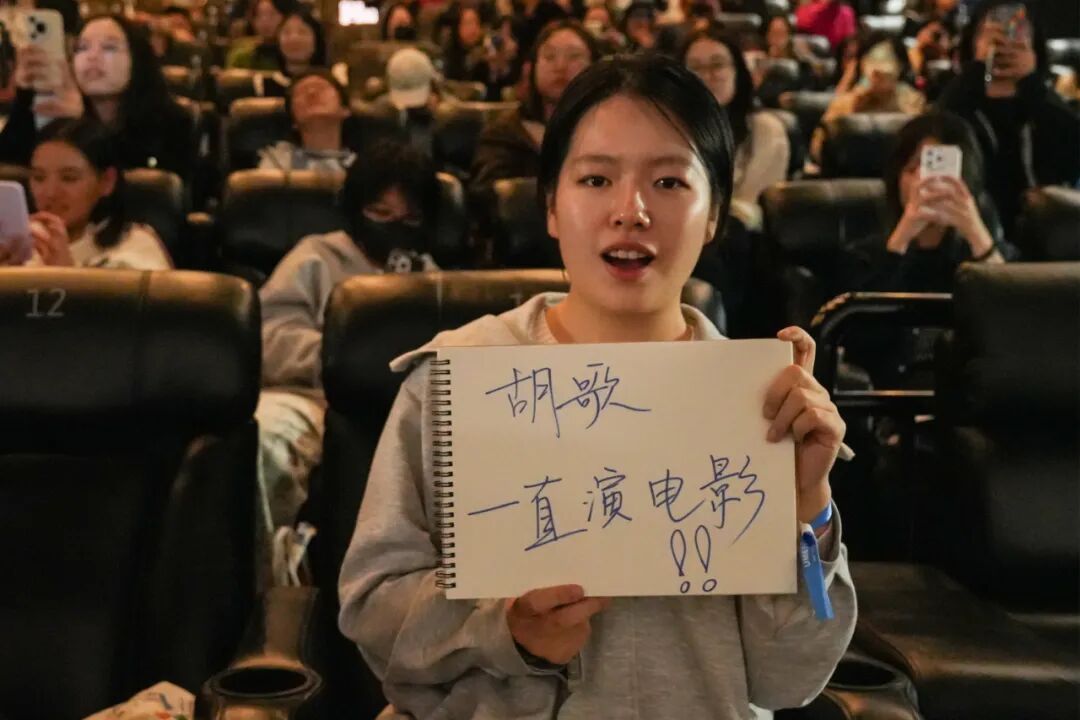 胡歌
一直演电影!!
12